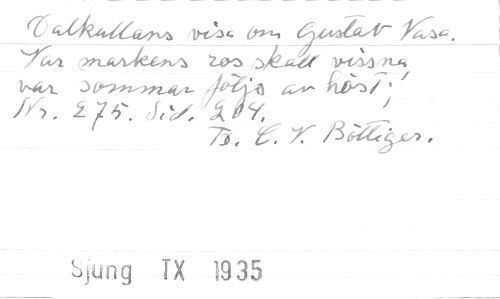 Dalkullans visa om Gustav Vasa.
Var markens ros skall vissna
var sommar följs av höst;!
Nr. 275. Sid. 204.
Tv. C. V. Böttiger.
Sjung TX 1935